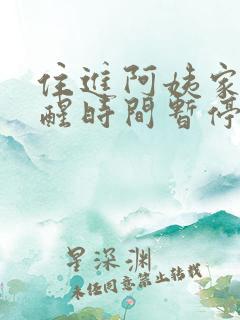 住進阿姨家
醒時間暫停
星深渊
未经同意禁止转载